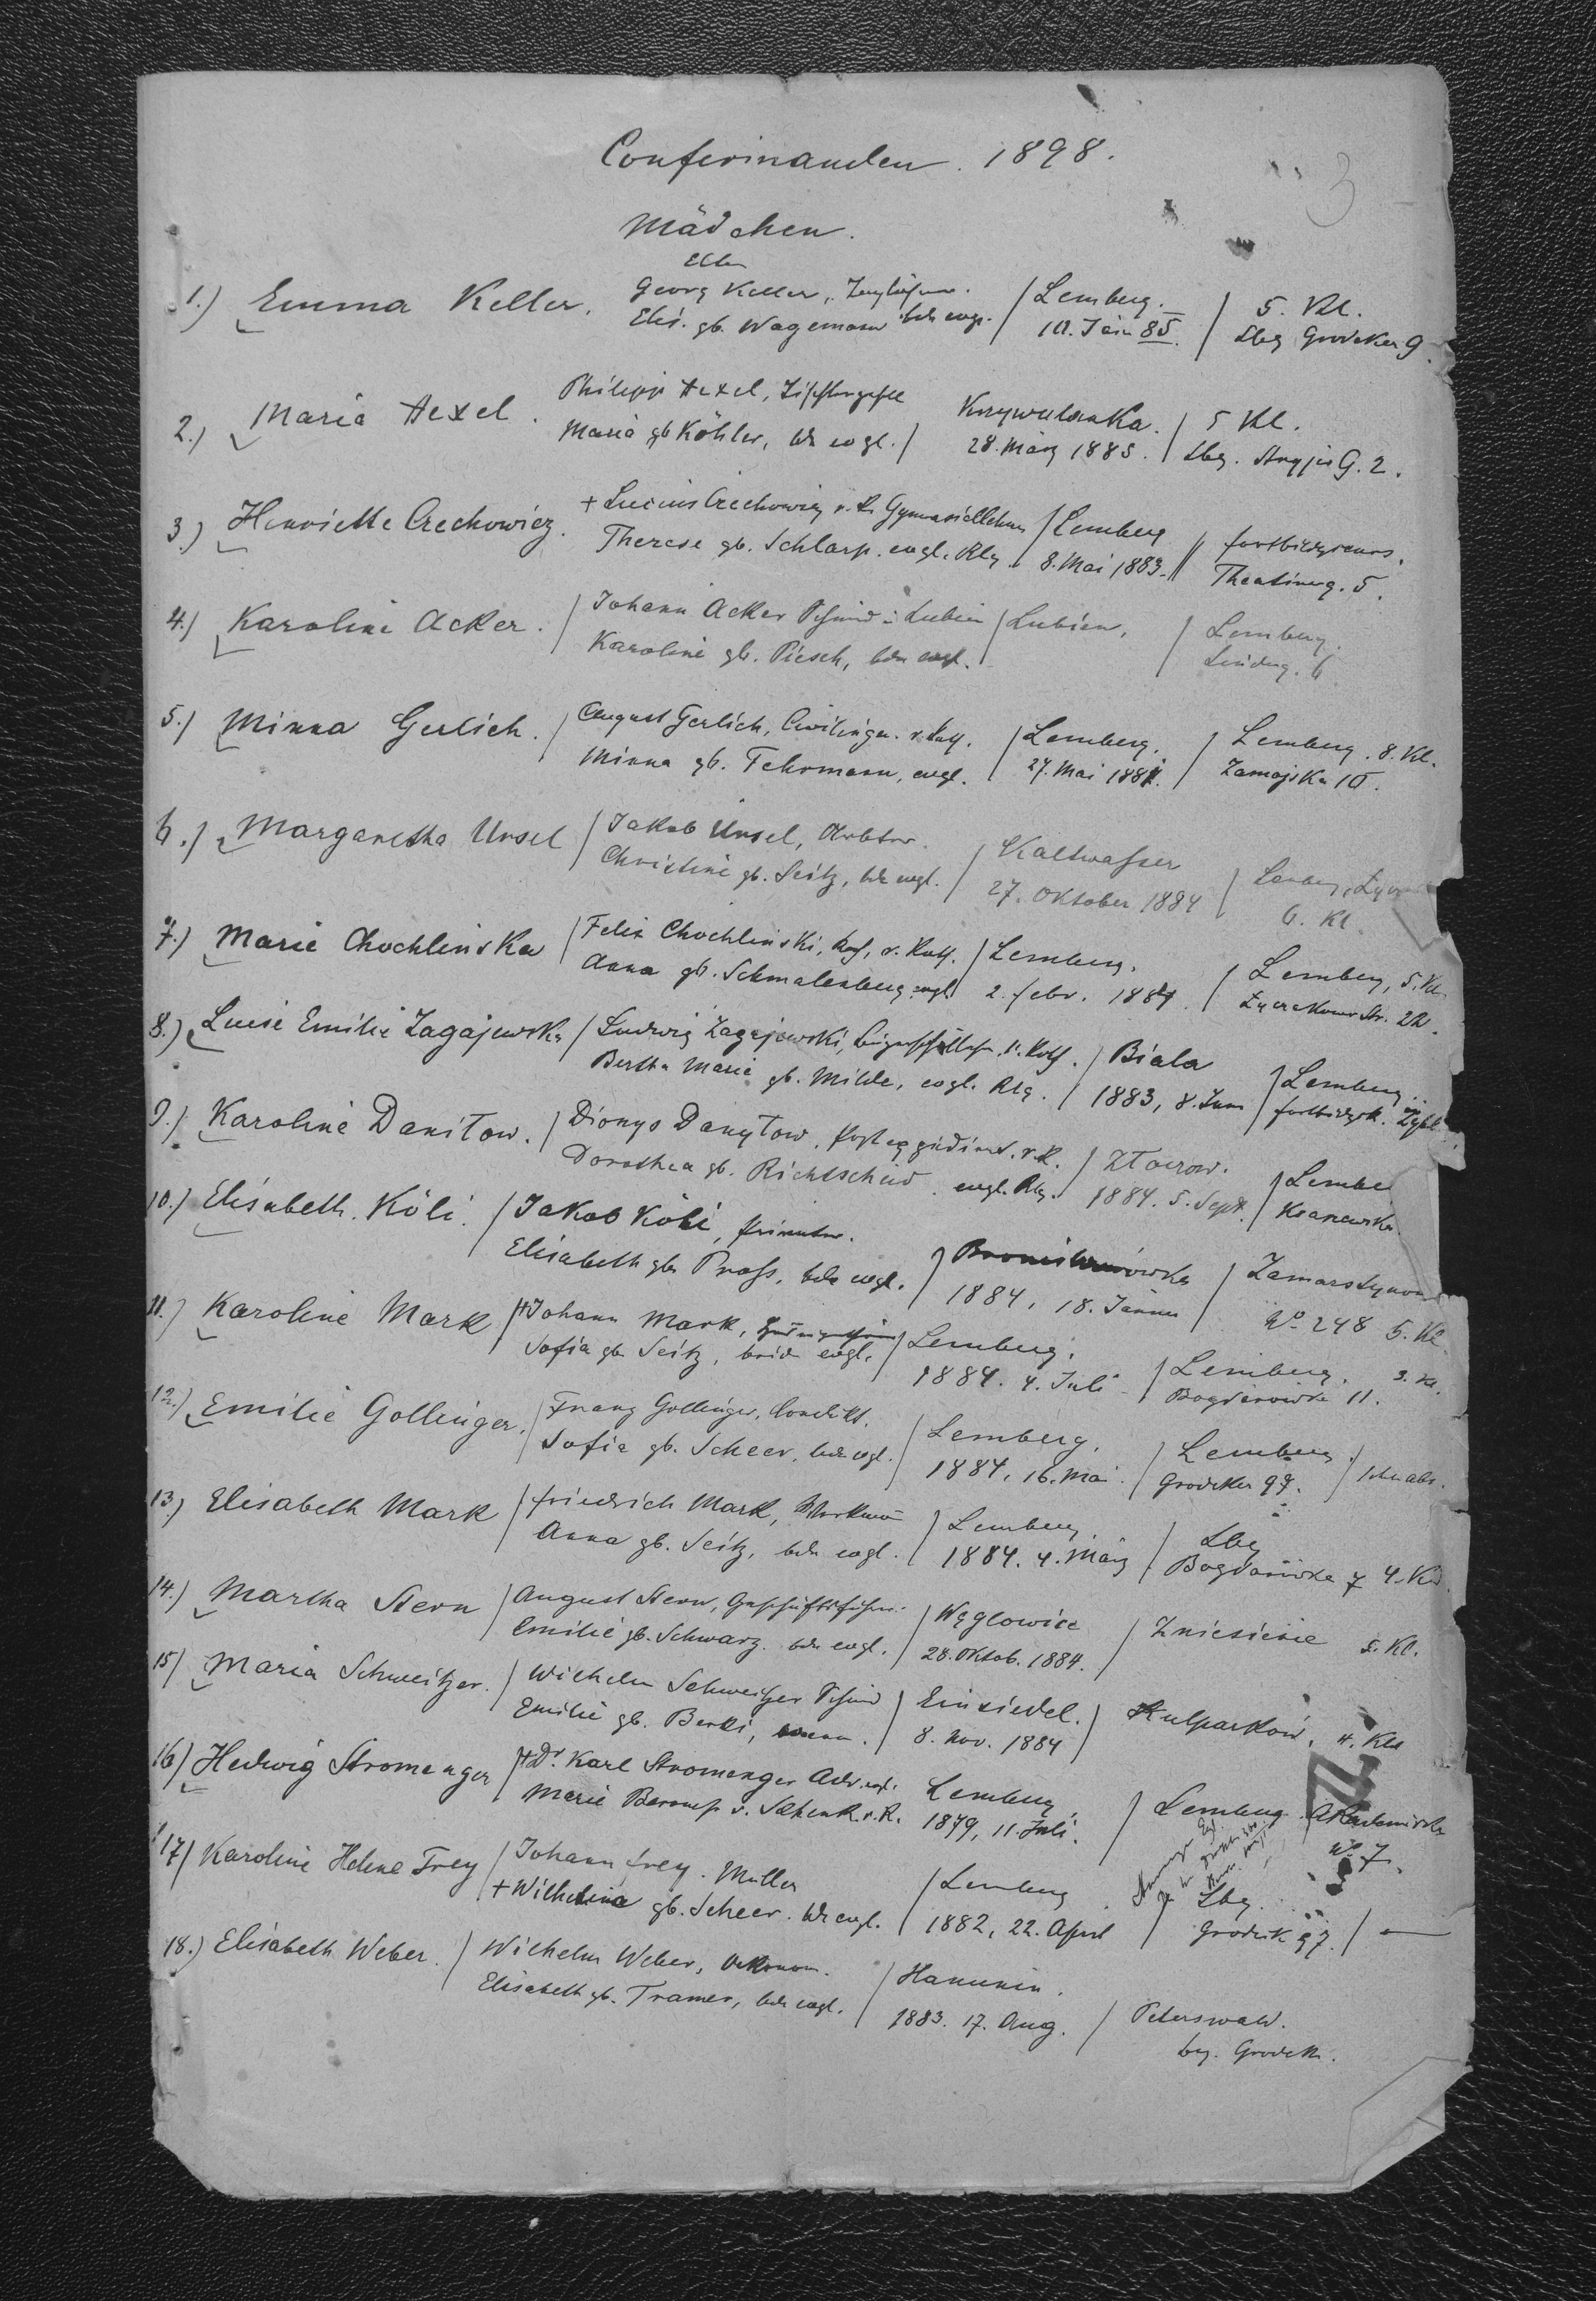 Confirmanden. 1898.
3
Mädchen.
1.) Emma Keller.
Georg Keller,
Elis. gb. Wagemann bde evgl.
Lemberg.
10. Jän 85.
5. Kl.
Lbg Grodeker 9
2.) Maria Hexel.
Philipp Hexel,
Maria gb Köhler, bde evgl.
28. März 1885.
5 Kl.
Lbg. G. 2.
3.) Henriette Orechowicz.
+ Lucius Orechowicz r. k. Gymnasiallehrer
Therese gb. Schlarp. evgl. Rlg
Lemberg
8. Mai 1883.
Theatinerg. 5.
4.) Karoline Acker.
Johann Acker Lubien
Karoline gb. Piesch, bde evgl.
Lubien,
Lemberg.
Lindeng. 6
5.) Minna Gerlich.
August Gerlich, Civilingen. r. kath.
Minna gb. Fehrmann, evgl.
Lemberg.
27. Mai
Lemberg. 8. Kl.
Zamojska 10.
6.) Margaretha Ursel
Jakob Ursel,
Christine gb. Seitz, bde evgl.
Kaltwasser
27. Oktober 1884
Lemberg,
6. Kl.
7.) Marie Chochlinska
Felix Chochlinski, r. Kath.
Anna gb. Schmalenberg evgl
Lemberg.
2. febr. 1884.
Lemberg, 5. Kl.
8.) Luise Emilie Zagajewska
Ludwig Zagajewski, r. Kath.
Bertha Marie gb. Milde, evgl. Rlg.
Biala
1883, 8. Juni
Lemberg
9.) Karoline Daniłow.
Dionys Danyłow. r. k.
Dorothea gb. Richtscheid. evgl. Rlg.
Złoczow.
1884. 5. Sept.
Lembe
10.) Elisabeth Köli.
Jakob Köli,
Elisabeth gb. Pross, bde evgl.
1884, 18. Jänner
Zamarstynow
No 248 5. Kl.
11.) Karoline Mark
+ Johann Mark,
Sofia gb Seitz, beide evgl.
Lemberg.
1884. 4. Juli
Lemberg. 3. Kl.
Bogdanowka 11.
12.) Emilie Gollinger.
Franz Gollinger,
Sofia gb. Scheer, bde evgl.
Lemberg.
1884, 16. Mai.
Lemberg
Grodeker 97.
13.) Elisabeth Mark
Friedrich Mark,
Anna gb. Seitz, bde evgl.
Lemberg.
1884. 4. März
Lbg
Bogdanówka 7 4. Kl.
14.) Martha Stern
August Stern, Geschäftsführer
Emilie gb. Schwarz bde evgl.
Węglowice
28. Oktob. 1884.
Zniesienie 5. Kl.
15) Maria Schweitzer.
Wilhelm Schweitzer
Emilie gb. Berki,
Einsiedel.
8. Nov. 1884
Kulparków, 4. Kl.
16) Hedwig Stromenger
+ Dr. Karl Stromenger Adv. evgl.
Marie v. Schenk r. k.
Lemberg,
1879, 11. Juli.
Lemberg. Akademische
No 7.
17) Karoline Helene Frey
Johann Frey. Müller
+ Wilhelmine gb. Scheer. bde evgl.
Lemberg
1882, 22. April
Lbg.
Grodek 97.
18.) Elisabeth Weber.
Wilhelm Weber, Oekonom.
Elisabeth gb. Tramer, bde evgl.
Hanunin.
1883. 17. Aug.
Peterswald.